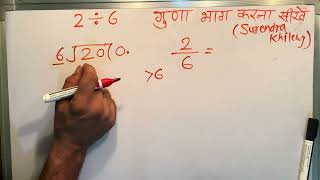 2 ÷ 6 गुणा भाग करना सीखें
(Surendra
Khilery)
6√20/0. 2/6 =
>6